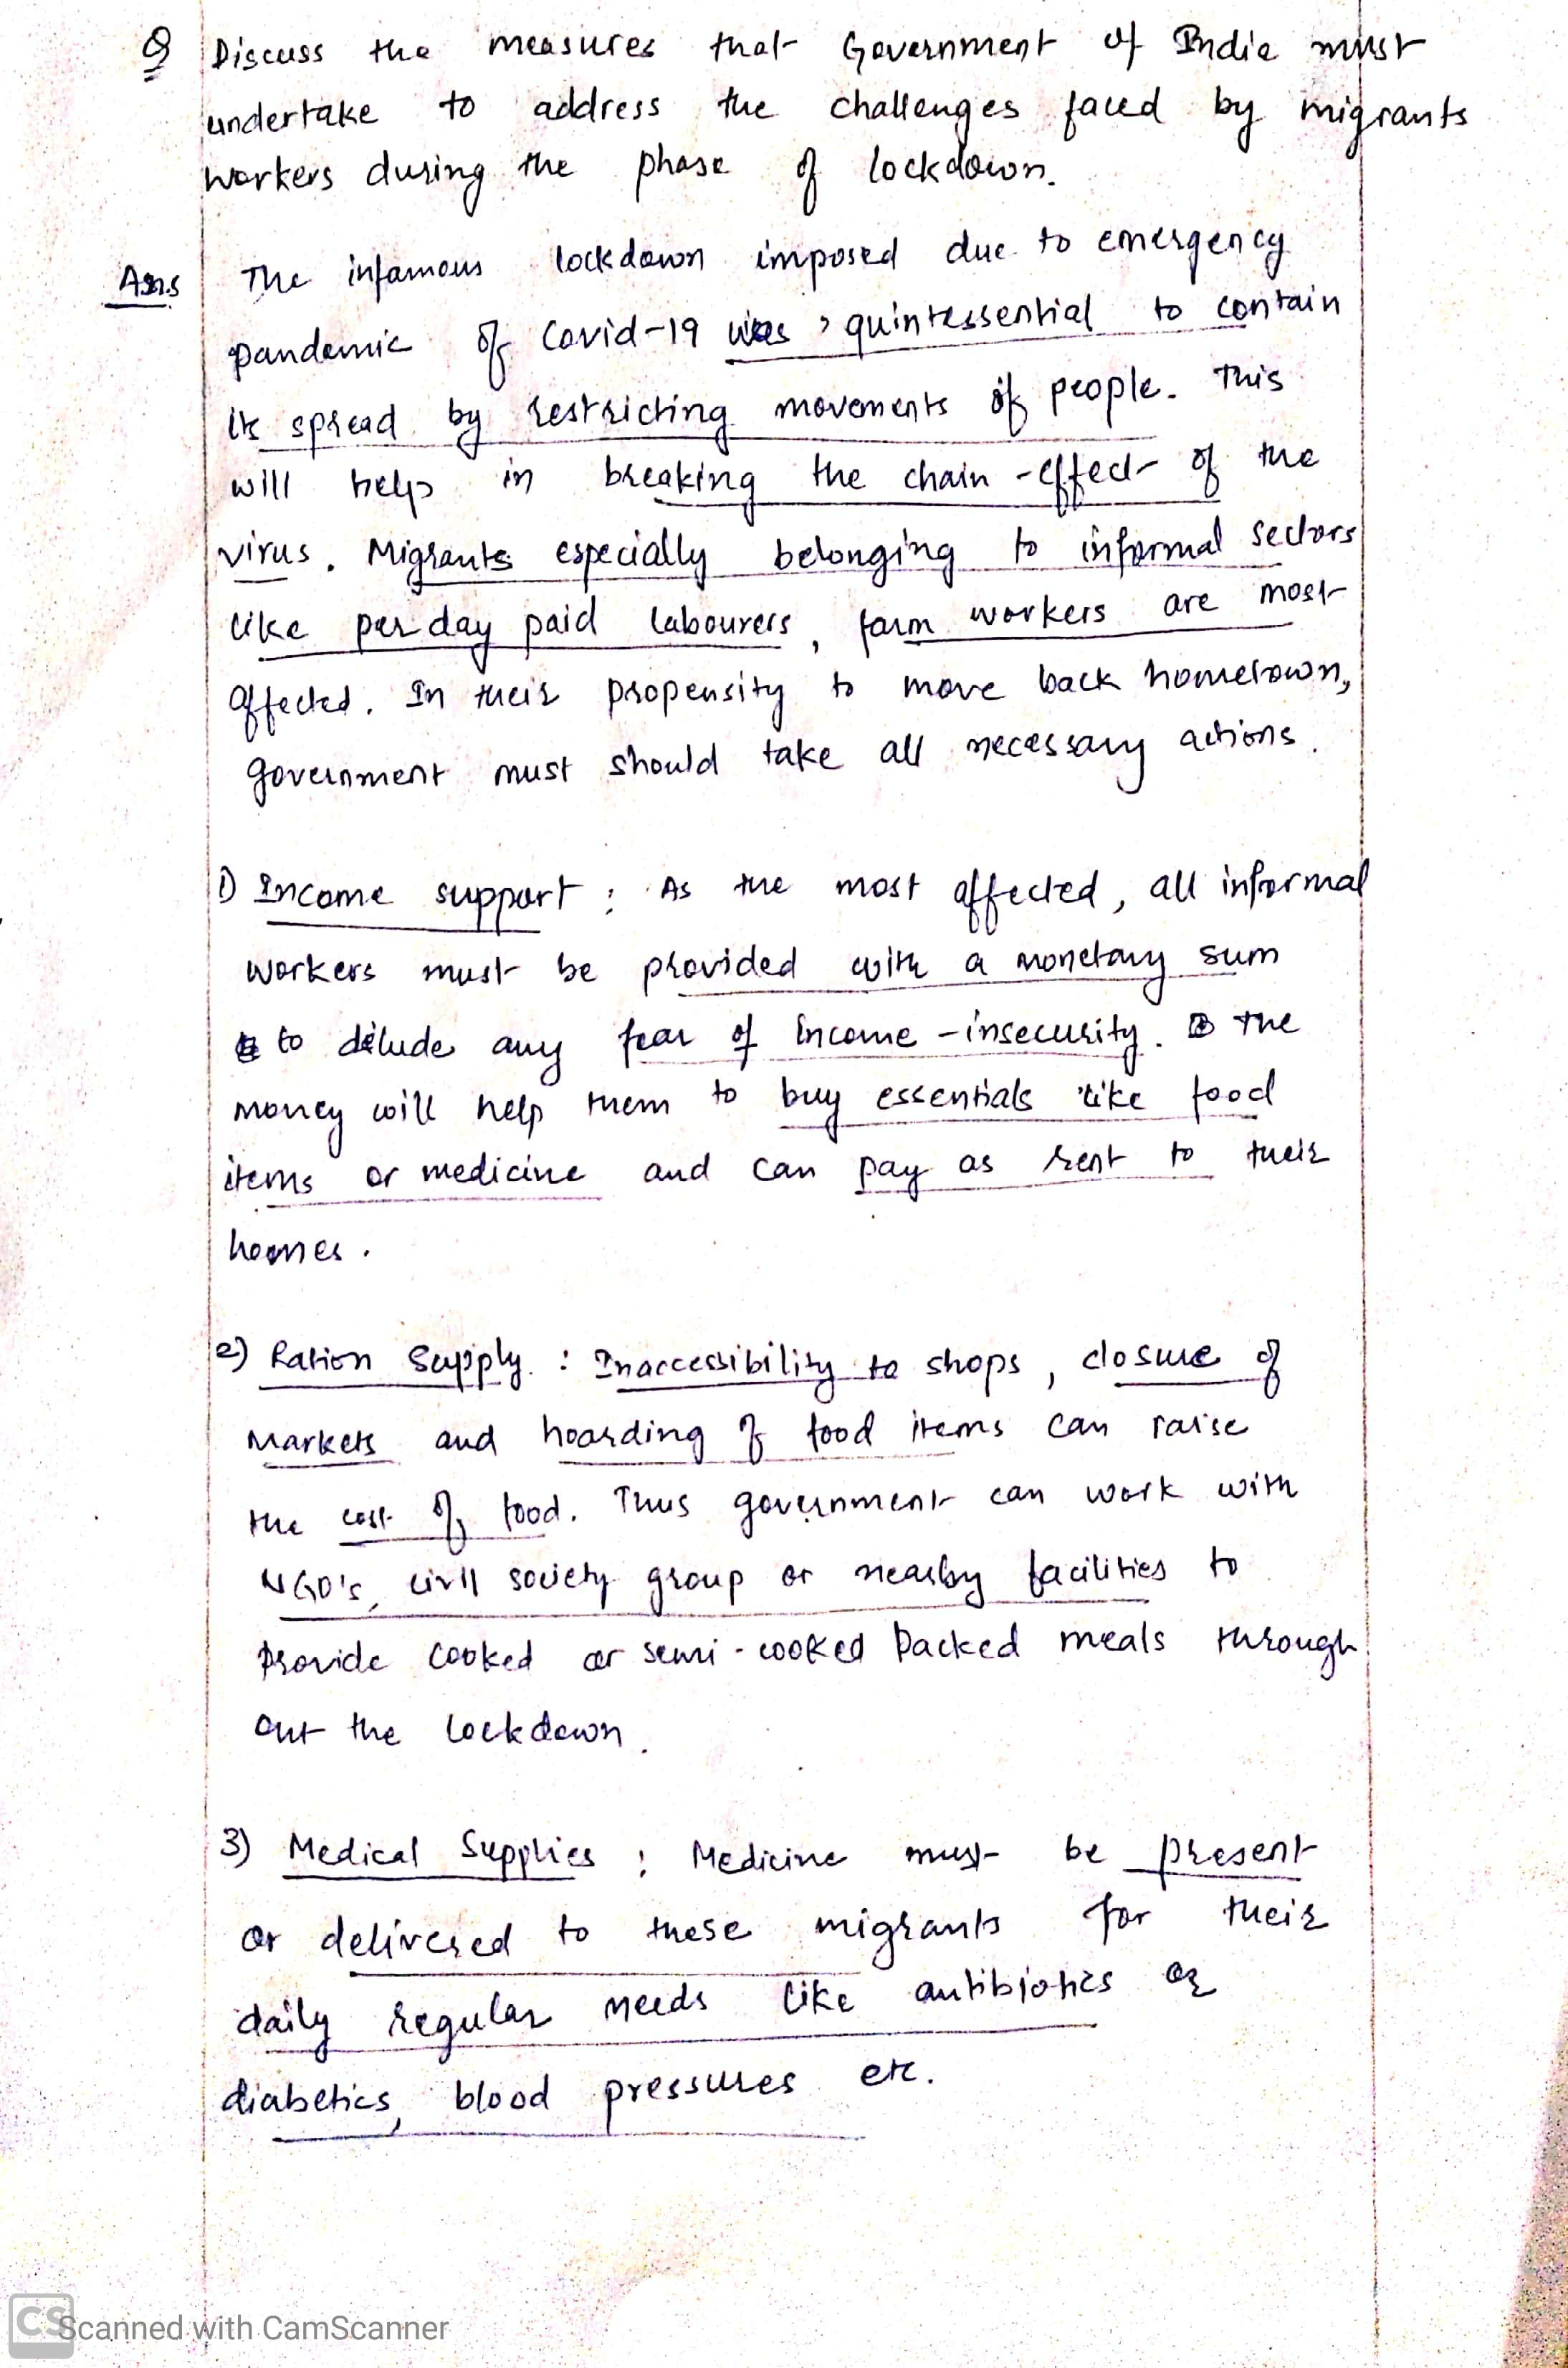 Q Discuss the measures that Government of India must
undertake to address the challenges faced by migrants
workers during the phase of lockdown.
Ans The infamous lockdown imposed due to emergency
pandemic of Covid-19 was quintessential to contain
its spread by restricting movements of people. This
will help in breaking the chain-effect of the
virus. Migrants especially belonging to informal sectors
like per day paid labourers, farm workers are most
affected. In their propensity to move back hometown,
government must should take all necessary actions.
1) Income support : As the most affected, all informal
workers must be provided with a monetary sum
to dilude any fear of income-insecurity. The
money will help them to buy essentials like food
items or medicine and can pay as rent to their
homes.
2) Ration Supply : Inaccessibility to shops, closure of
Markets and hoarding of food items can raise
the cost of food. Thus government can work with
NGO's, civil society group or nearby facilities to
provide cooked or semi-cooked packed meals through
out the lockdown.
3) Medical Supplies : Medicine must be present
or delivered to these migrants for their
daily regular needs like antibiotics or
diabetics, blood pressures etc.
CS Scanned with CamScanner